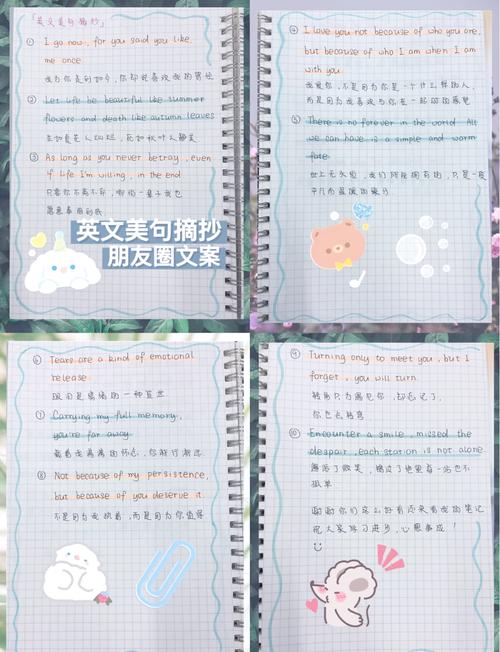 「英文美句摘抄」
① I go now, for you said you like
me once.
② Let life be beautiful like summer
flowers and death like autumn leaves
生如夏花之灿烂，死如秋叶之静美
③ As long as you never betray, even
if life I'm willing, in the end
愿意奉陪到底
英文美句摘抄
朋友圈文案
④ I love you not because of who you are,
but because of who I am when I am
with you.
我爱你，不是因为你是一个什么样的人，
而是因为我喜欢与你在一起时的感觉
⑤ There is no forever in the world. All
we can have is a simple and warm
fate.
世上无永恒，我们所能拥有的，只是一段
平凡而温暖的缘分
⑥ Tears are a kind of emotional
release.
眼泪是情绪的一种宣泄
⑦ Carrying my full memory,
you're far away
载着我满满的怀念，你越行渐远
⑧ Not because of my persistence,
but because of you deserve it.
不是因为我执着，而是因为你值得
⑨ Turning only to meet you, but I
forget, you will turn.
转角只为遇见你，却忘记了，
你也会转弯
⑩ Encounter a smile, missed the
despair, each station is not alone
邂逅了微笑，错过了绝望，每一站也不
孤单
谢谢你们这么好看还来看我的笔记
祝大家学习进步，心想事成！